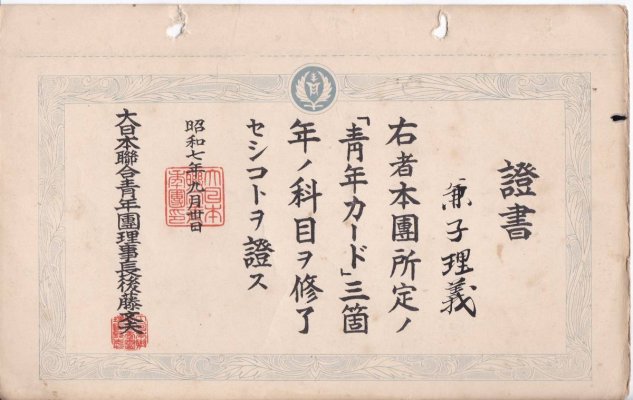 證書
兼子理義
右者本團所定ノ
「靑年カード」三箇
年ノ科目ヲ修了
セシコトヲ證ス
昭和七年九月卅日
大日本聯合靑年團理事長後藤文夫